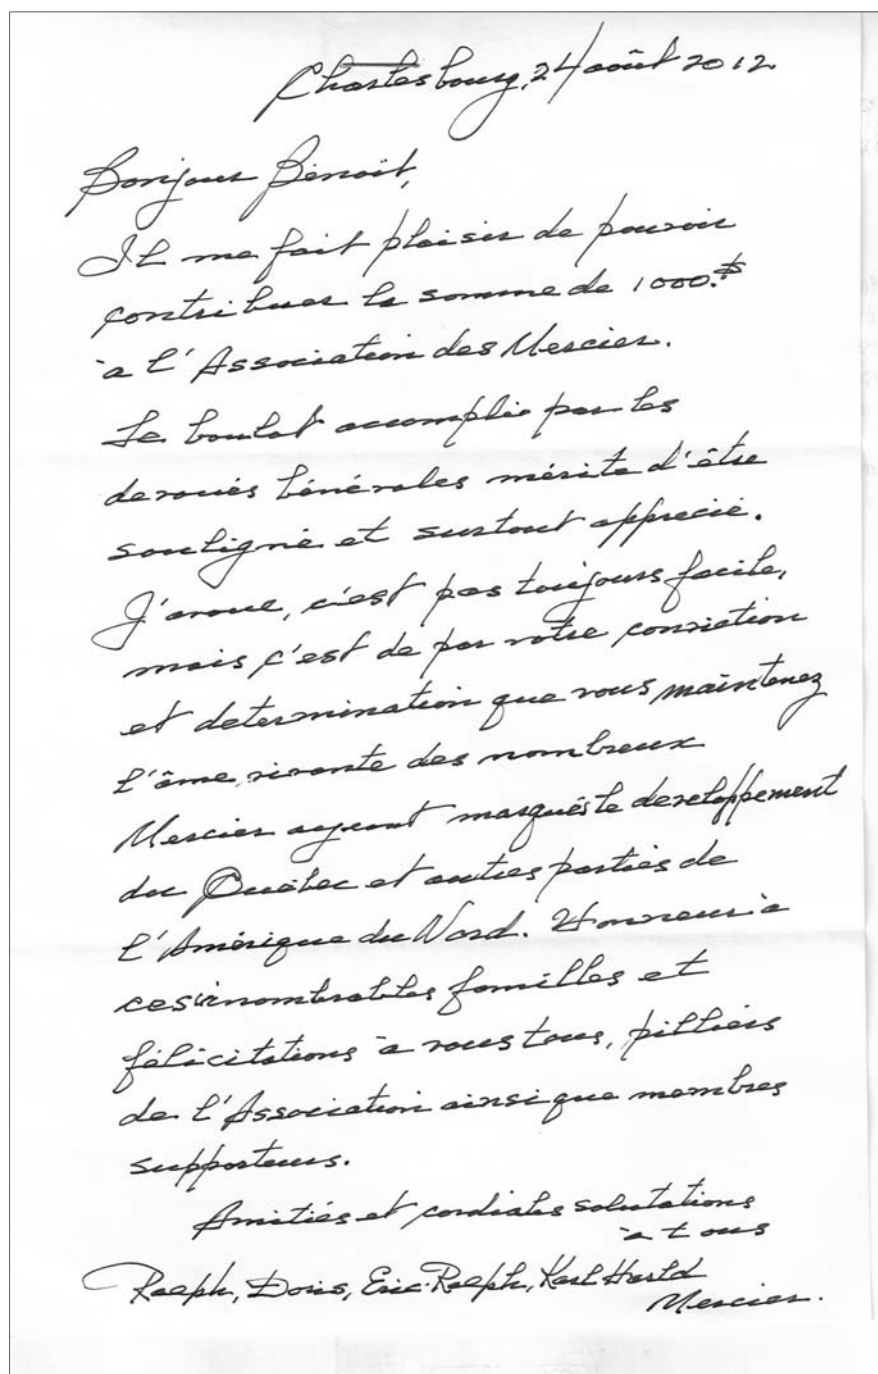 Charlesbourg, 24 août 2012
Bonjour Benoît,
Il me fait plaisir de pouvoir
contribuer la somme de 1000.$
à l'Association des Mercier.
Le boulot accomplie par les
devoués bénévoles mérite d'être
souligné et surtout apprecié.
J'avoue, c'est pas toujours facile,
mais c'est de par votre conviction
et determination que vous maintenez
l'âme vivante des nombreux
Mercier ayant marqués le developpement
du Québec et autres parties de
l'Amérique du Nord. Honneur à
ces innombrables familles et
félicitations à vous tous, pilliers
de l'Association ainsi que membres
supporteurs.
Amitiés et cordiales salutations
à tous
Ralph, Doris, Eric-Ralph, Karl Harld
Mercier.